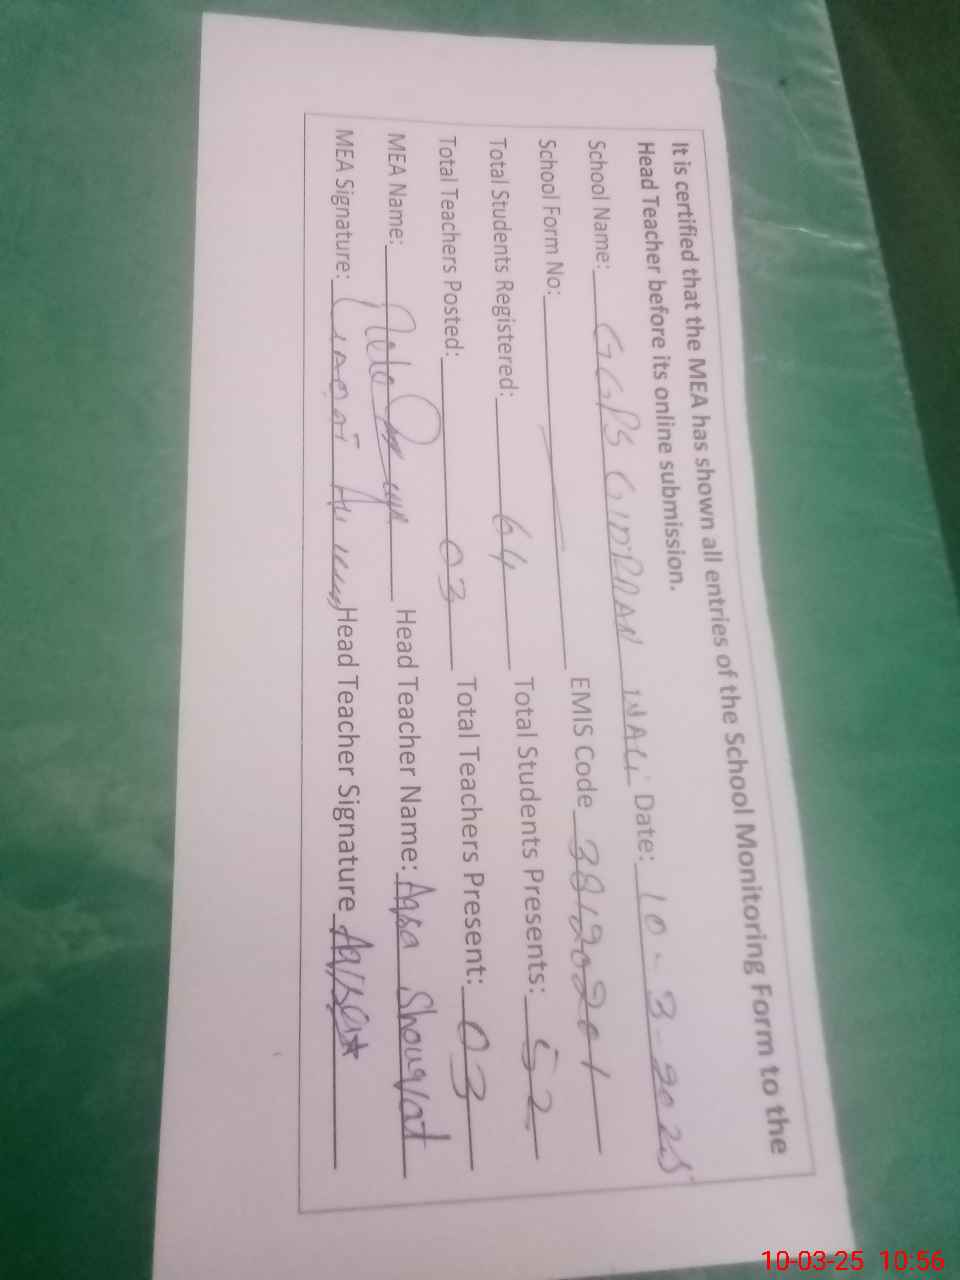 It is certified that the MEA has shown all entries of the School Monitoring Form to the
Head Teacher before its online submission.
School Name: GGPS Date: 10-3-2025
School Form No: EMIS Code 38120201
Total Students Registered: 64 Total Students Presents: 52
Total Teachers Posted: 03 Total Teachers Present: 03
MEA Name: Head Teacher Name: Aqsa Shouqat
MEA Signature: Head Teacher Signature
10-03-25 10:56